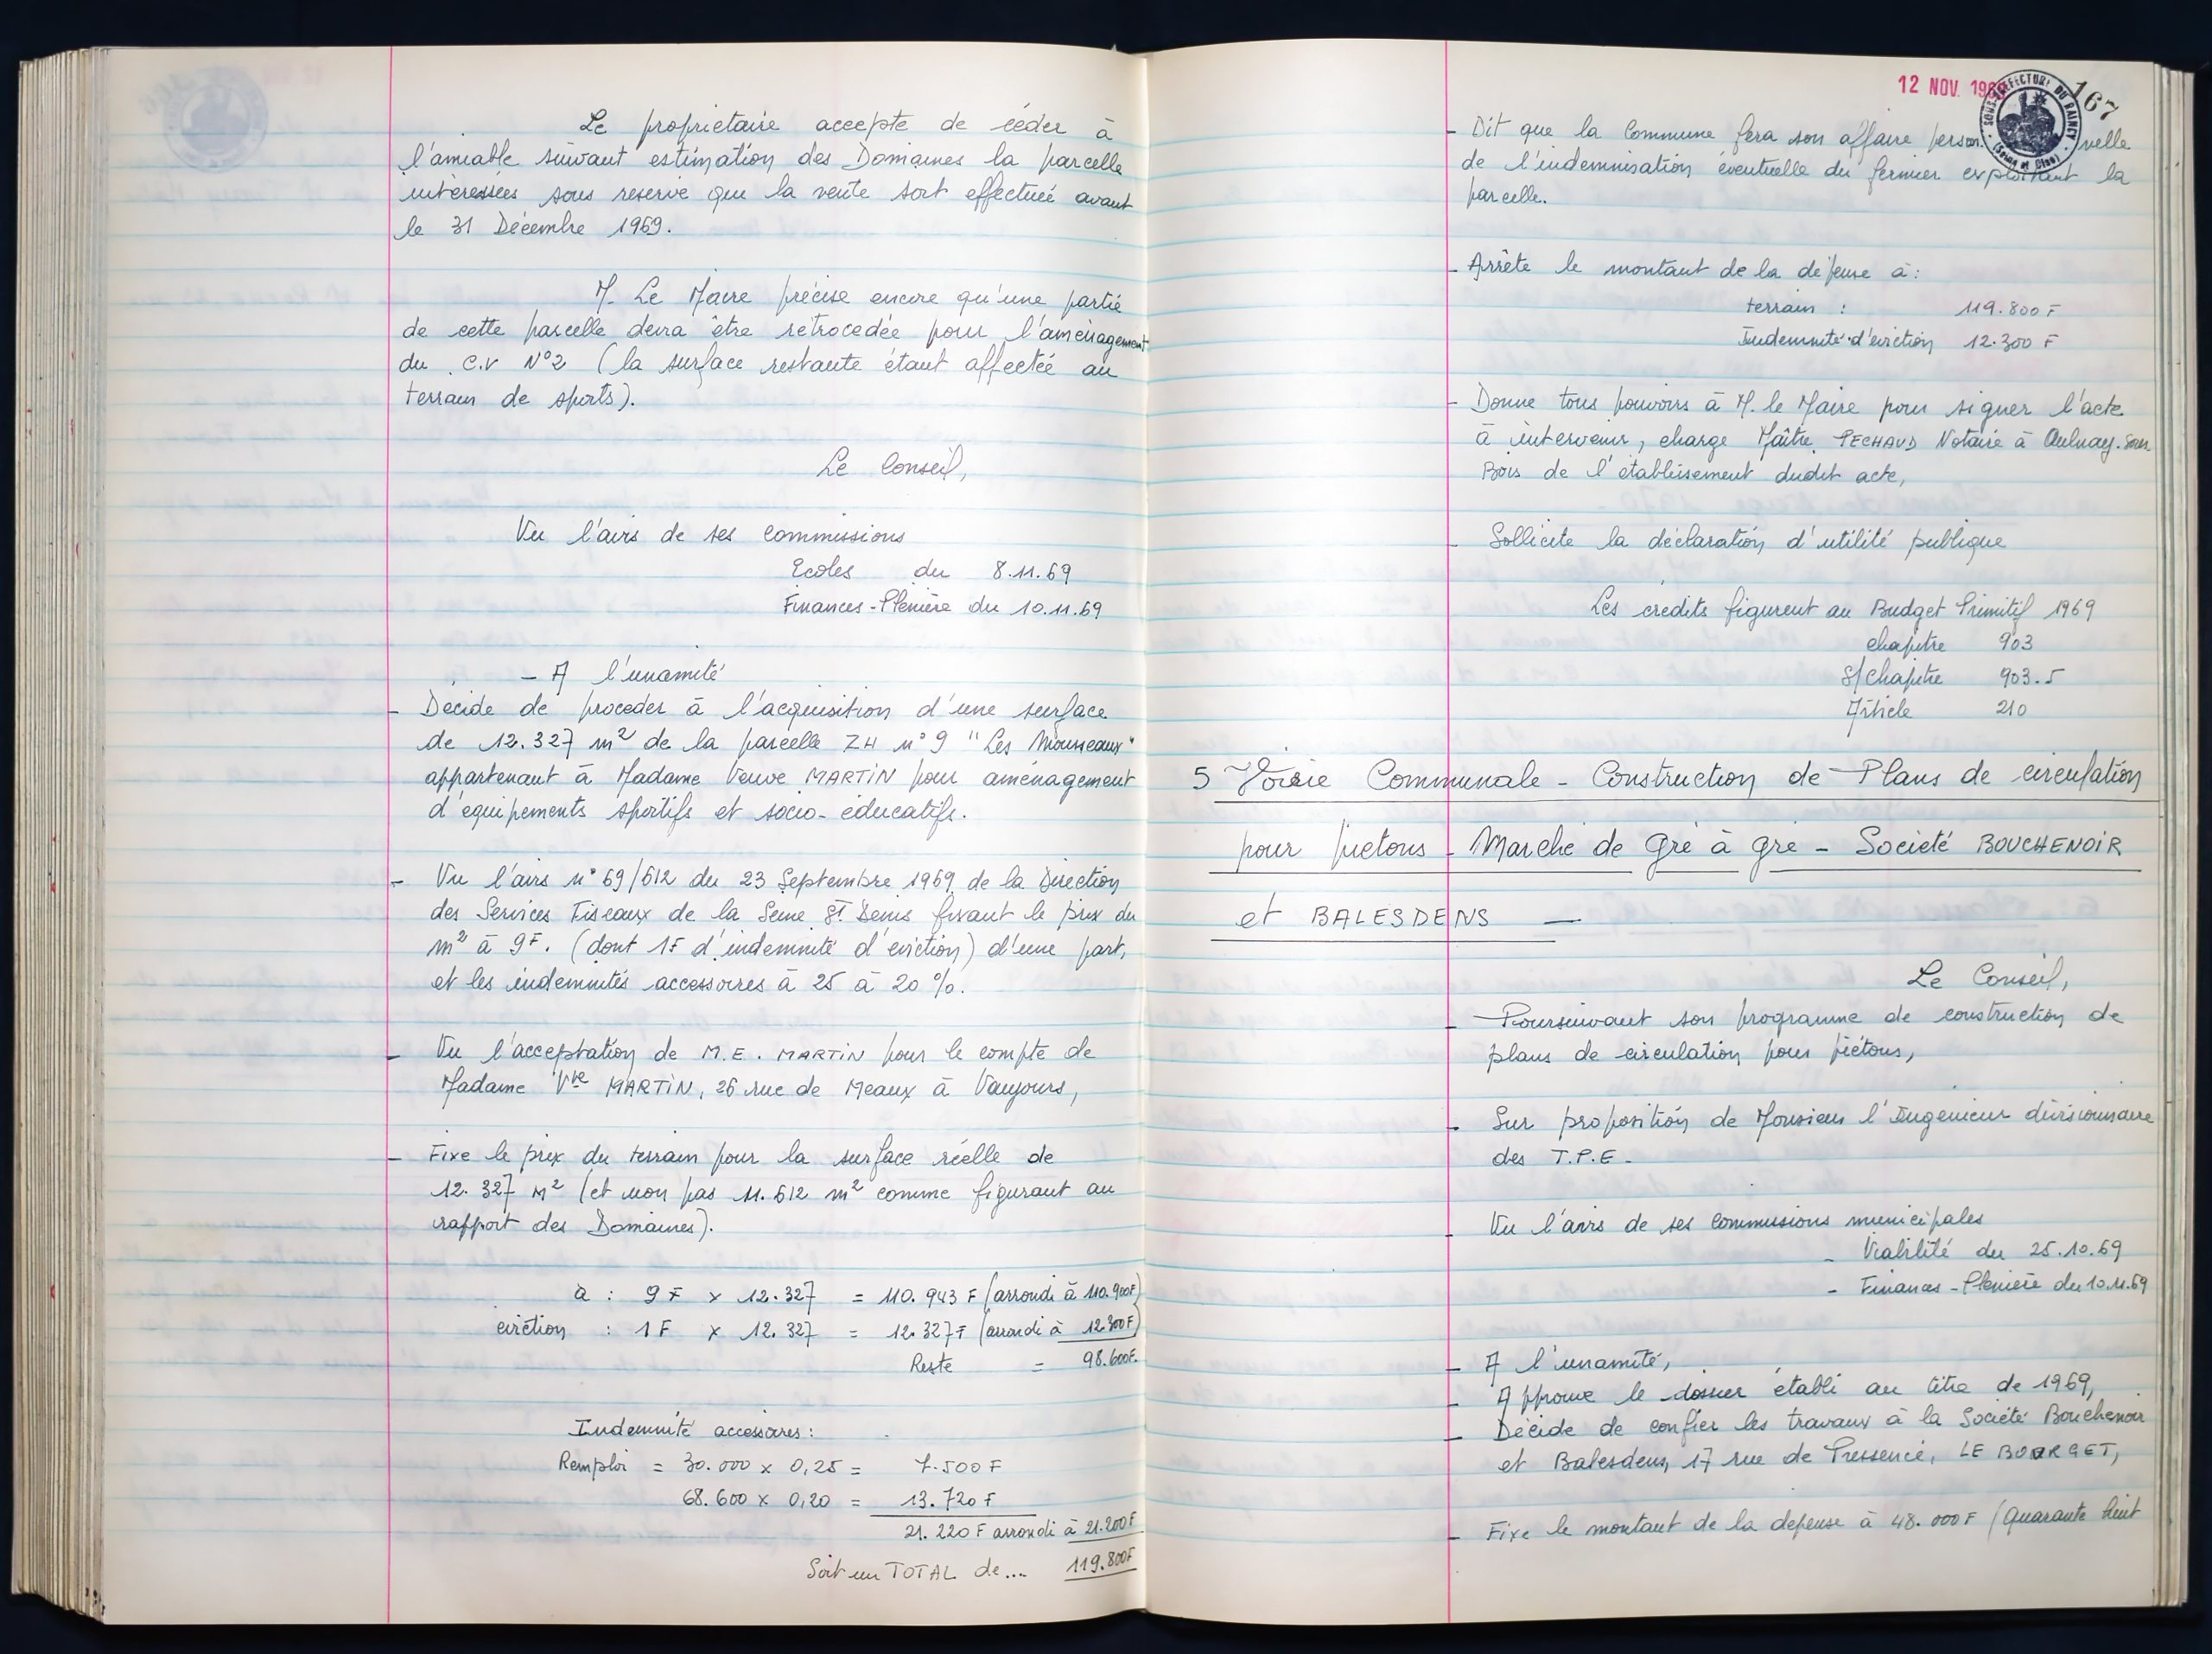 Le propriétaire accepte de céder à
l'amiable suivant estimation des Domaines la parcelle
intéressées sous réserve que la vente soit effectuée avant
le 31 Décembre 1969.
M. Le Maire précise encore qu'une partie
de cette parcelle devra être rétrocédée pour l'aménagement
du C.V N°2 (la surface restante étant affectée au
terrain de sports).
Le Conseil,
Vu l'avis de ses commissions
Ecoles du 8.11.69
Finances-Plénière du 10.11.69
- A l'unamité
- Décide de procéder à l'acquisition d'une surface
de 12.327 m² de la parcelle ZH n°9 "Les Mousseaux"
appartenant à Madame Veuve MARTIN pour aménagement
d'équipements sportifs et socio-éducatifs.
- Vu l'avis n°69/612 du 23 Septembre 1969 de la Direction
des Services Fiscaux de la Seine St Denis fixant le prix du
m² à 9F. (dont 1F d'indemnité d'éviction) d'une part,
et les indemnités accessoires à 25 à 20%.
- Vu l'acceptation de M.E. MARTIN pour le compte de
Madame Vve MARTIN, 26 rue de Meaux à Vaujours,
- Fixe le prix du terrain pour la surface réelle de
12.327 M² (et non pas 11.612 m² comme figurant au
rapport des Domaines).
à : 9F x 12.327 = 110.943 F (arrondi à 110.900F)
éviction : 1F x 12.327 = 12.327F (arrondi à 12.300F)
Reste = 98.600F.
Indemnité accessoires :
Remploi = 30.000 x 0,25 = 7.500 F
68.600 x 0,20 = 13.720 F
21.220 F arrondi à 21.200F
Soit un TOTAL de... 119.800F
12 NOV. 196
167
SOUS-PRÉFECTURE DU RAINCY
(Seine et Oise)
- Dit que la Commune fera son affaire person nelle
de l'indemnisation éventuelle du fermier exploitant la
parcelle.
- Arrête le montant de la dépense à :
terrain : 119.800 F
Indemnité d'éviction 12.300 F
- Donne tous pouvoirs à M. le Maire pour signer l'acte
à intervenir, charge Maître PECHAUD Notaire à Aulnay-sous
Bois de l'établissement dudit acte,
- Sollicite la déclaration d'utilité publique
Les crédits figurent au Budget Primitif 1969
chapitre 903
S/Chapitre 903.5
Article 210
5 Voirie Communale - Construction de Plans de circulation
pour piétons - Marché de Gré à gré - Société BOUCHENOIR
et BALESDENS —
Le Conseil,
- Poursuivant son programme de construction de
plans de circulation pour piétons,
- Sur proposition de Monsieur l'Ingénieur divisionnaire
des T.P.E.
- Vu l'avis de ses commissions municipales
- Viabilité du 25.10.69
- Finances-Plénière du 10.11.69
- A l'unamité,
- Approuve le dossier établi au titre de 1969,
- Décide de confier les travaux à la Société Bouchenoir
et Balesdens, 17 rue de Pressencé, LE BOURGET,
- Fixe le montant de la dépense à 48.000F (Quarante huit